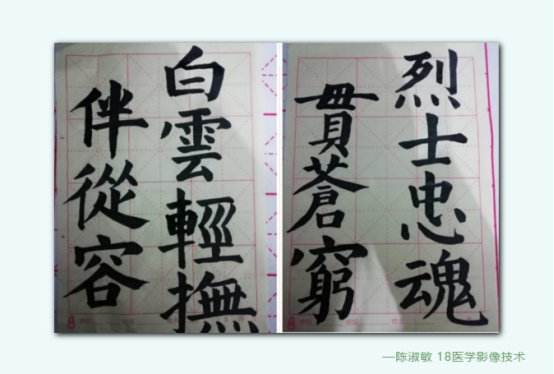 烈士忠魂
貫蒼窮
白雲輕撫
伴從容
—陈淑敏 18医学影像技术